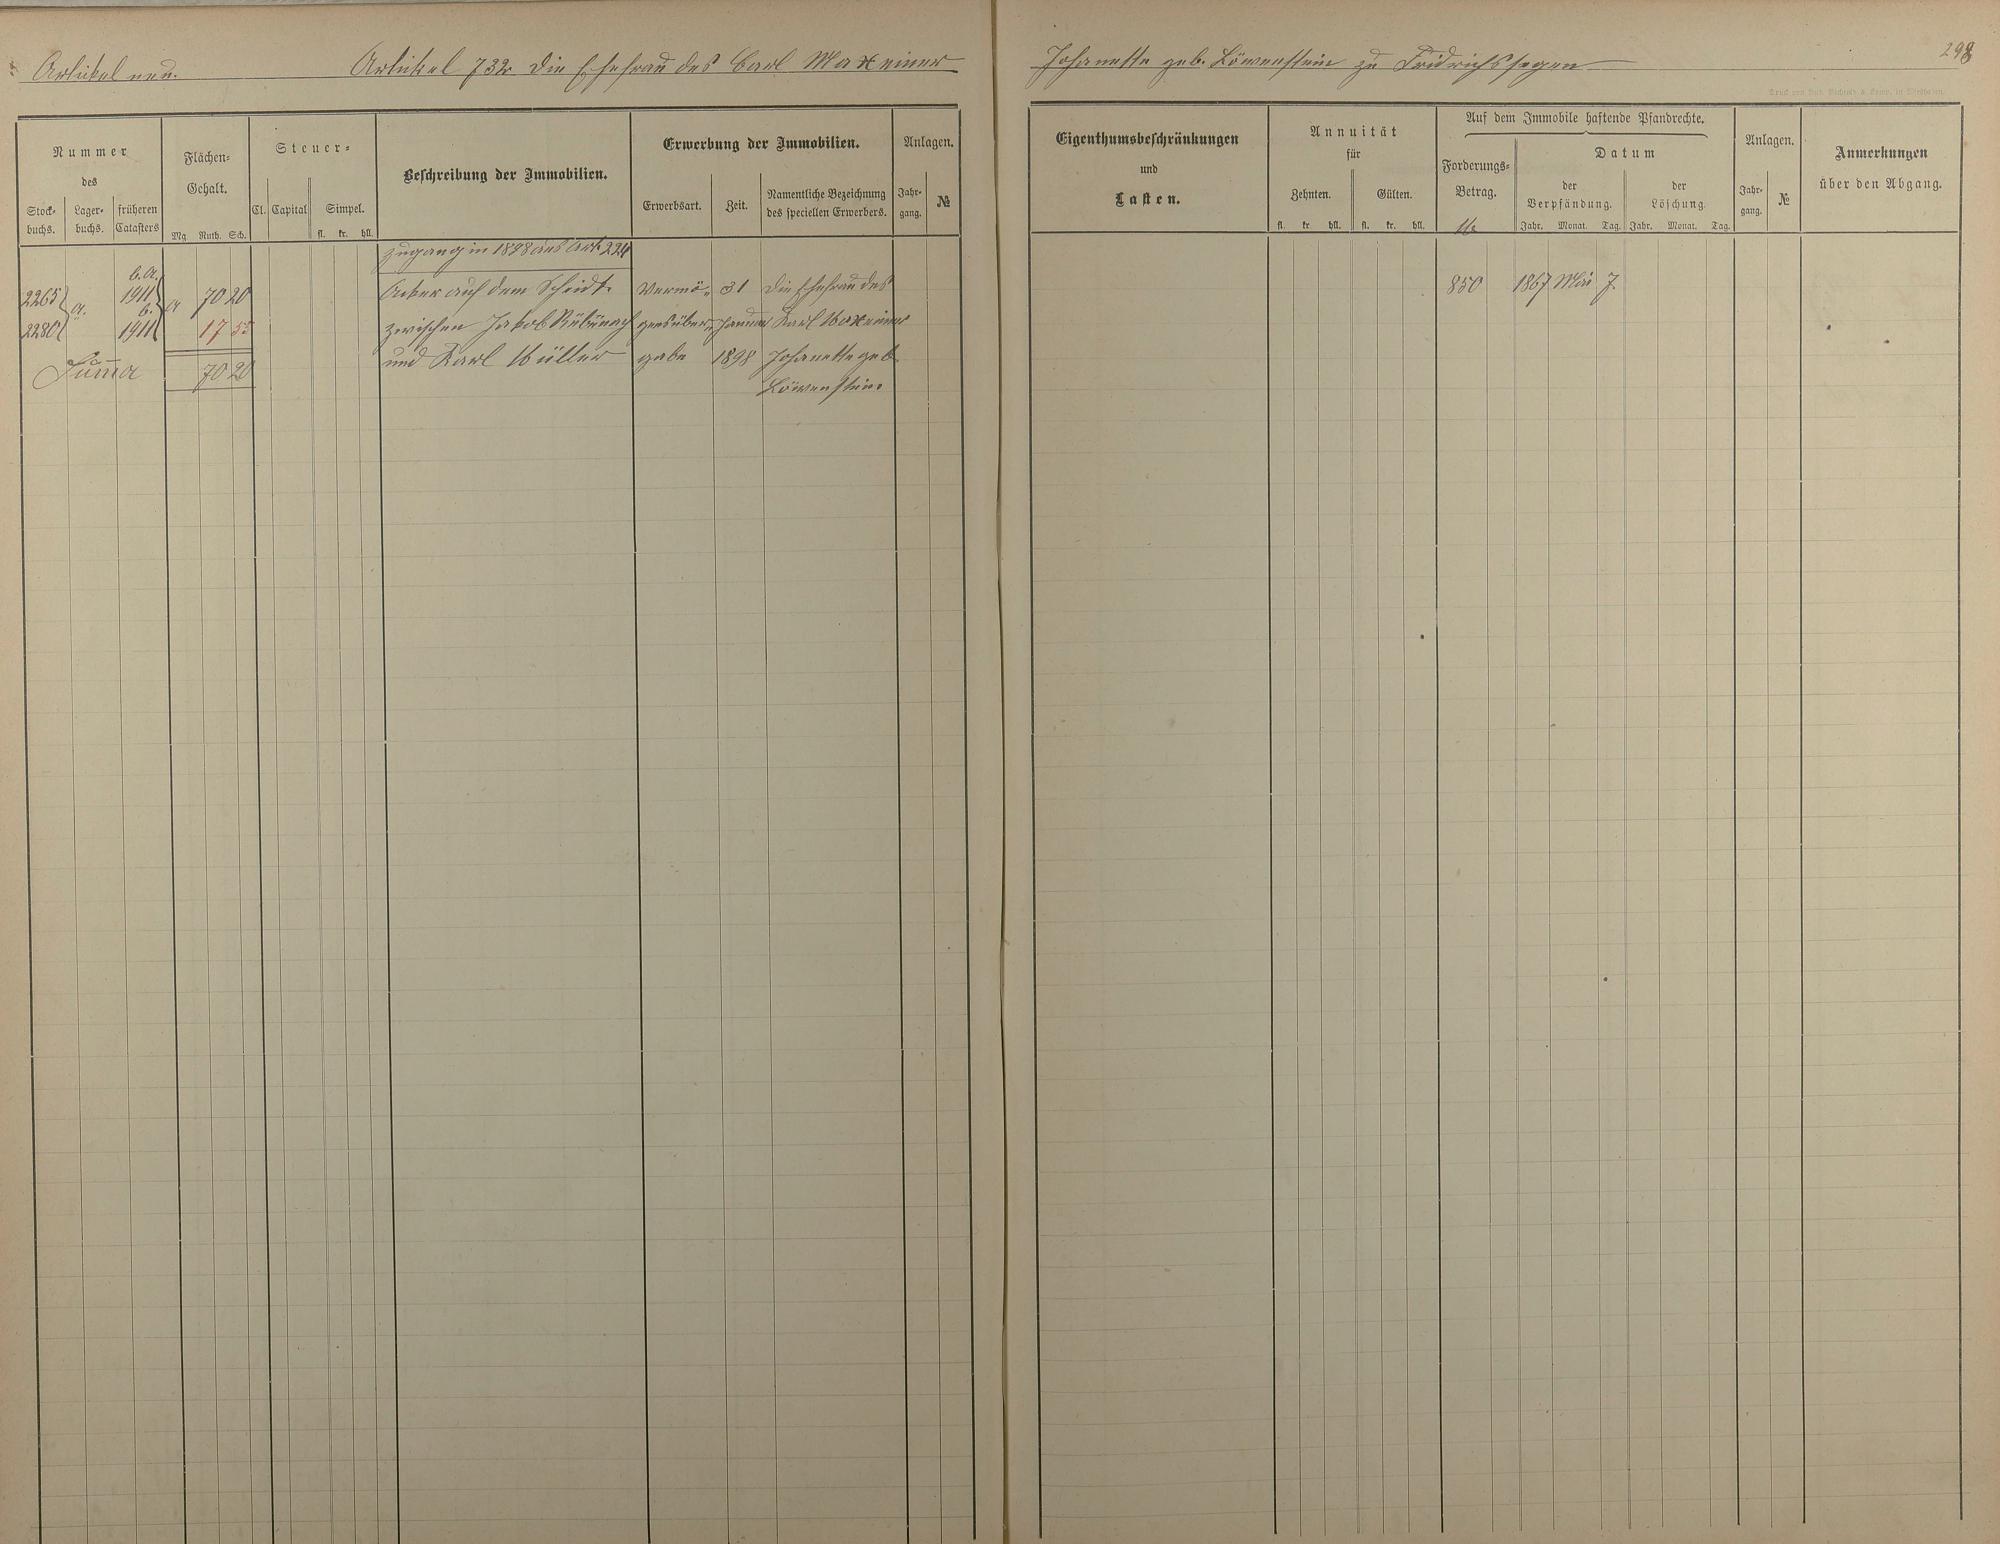 Artikel neu. Artikel 732 Die Ehefrau des Carl Maxeiner
Johanette geb. Löwenstein zu Fridrichssegen
298
Nummer
des
Stock-
buchs.
Lager-
buchs.
früheren
Catasters
Flächen-
Gehalt.
Mg. Ruth. Sch.
Steuer-
Cl. Capital
Simpel.
fl. kr. hll.
Beschreibung der Immobilien.
Erwerbung der Immobilien.
Erwerbsart.
Zeit.
Namentliche Bezeichnung
des speciellen Erwerbers.
Anlagen.
Jahr-
gang.
№
Eigenthumsbeschränkungen
und
Lasten.
Annuität
für
Zehnten.
Gülten.
fl. kr. hll. fl. kr. hll.
Auf dem Immobile haftende Pfandrechte.
Forderungs-
Betrag.
Datum
der
Verpfändung.
der
Löschung.
Jahr. Monat. Tag. Jahr. Monat. Tag.
Anlagen.
Jahr-
gang.
№
Anmerkungen
über den Abgang.
Zugang in 1898 aus Art. 224
2265 a. 1911 a 70 20
2280 1911 17 55
Suma 70 20
Acker auf dem Scheidt
zwischen Jakob Rübenach
und Karl Müller
Vermö-
gensüber-
gabe
31
Januar
1898
Die Ehefrau des
Karl Maxeiner
Johanette geb
Löwenstein
850 1867 Mai 7